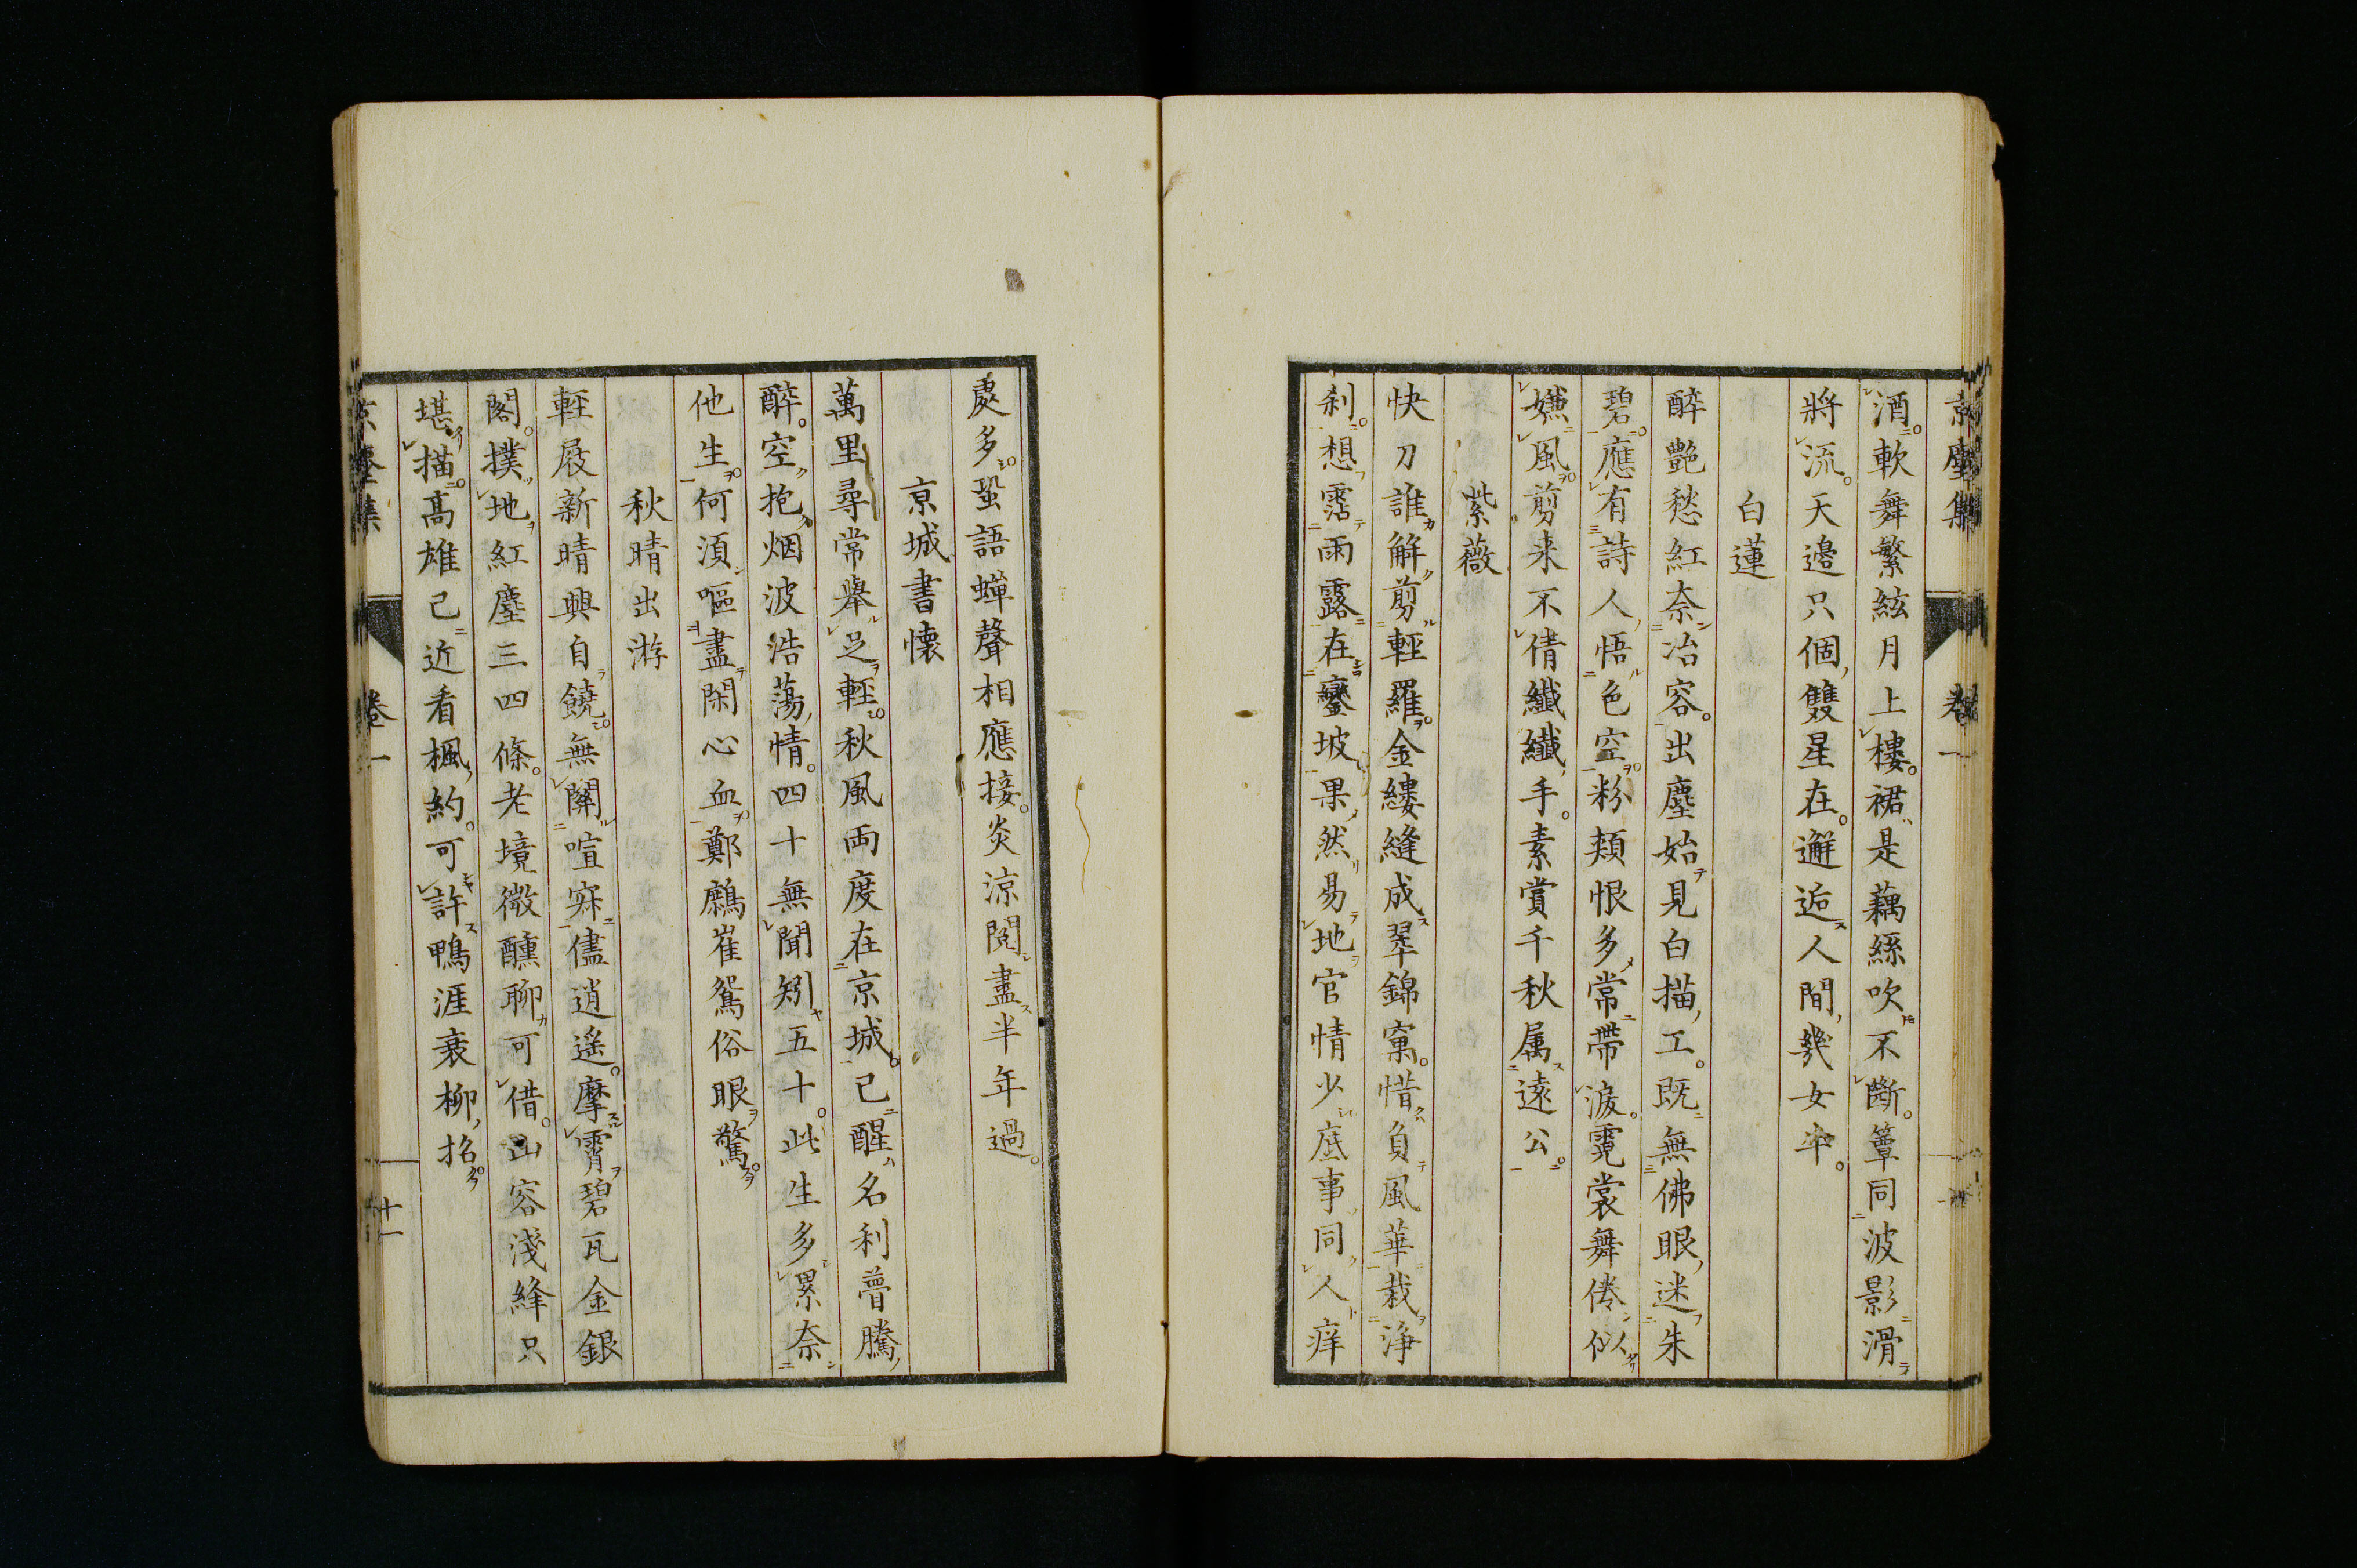 京塵集 卷一
酒軟舞繁絃月上樓裙是藕絲吹不斷簟同波影滑
將流天邊只個雙星在邂逅人間幾女牛
白蓮
醉艷愁紅奈冶容出塵始見白描工既無佛眼迷朱
碧應有詩人悟色空粉頰恨多常帶淚霓裳舞倦似
嫌風剪来不倩纖纖手素賞千秋属遠公
紫薇
快刀誰解剪輕羅金縷縫成翠錦窠惜負風華栽淨
刹想霑雨露在鑾坡果然易地官情少底事同人痒
處多蛩語蟬聲相應接炎涼閲盡半年過
京城書懷
萬里尋常舉足輕秋風両度在京城已醒名利瞢騰
醉空抱烟波浩蕩情四十無聞矧五十此生多累奈
他生何須嘔盡閑心血鄭鷓崔鴛俗眼驚
秋晴出游
輕屐新晴興自饒無關喧寂儘逍遥摩霄碧瓦金銀
閣撲地紅塵三四條老境微醺聊可借山容淺絳只
堪描高雄已近看楓約可許鴨涯衰柳招
京塵集 卷一 十一